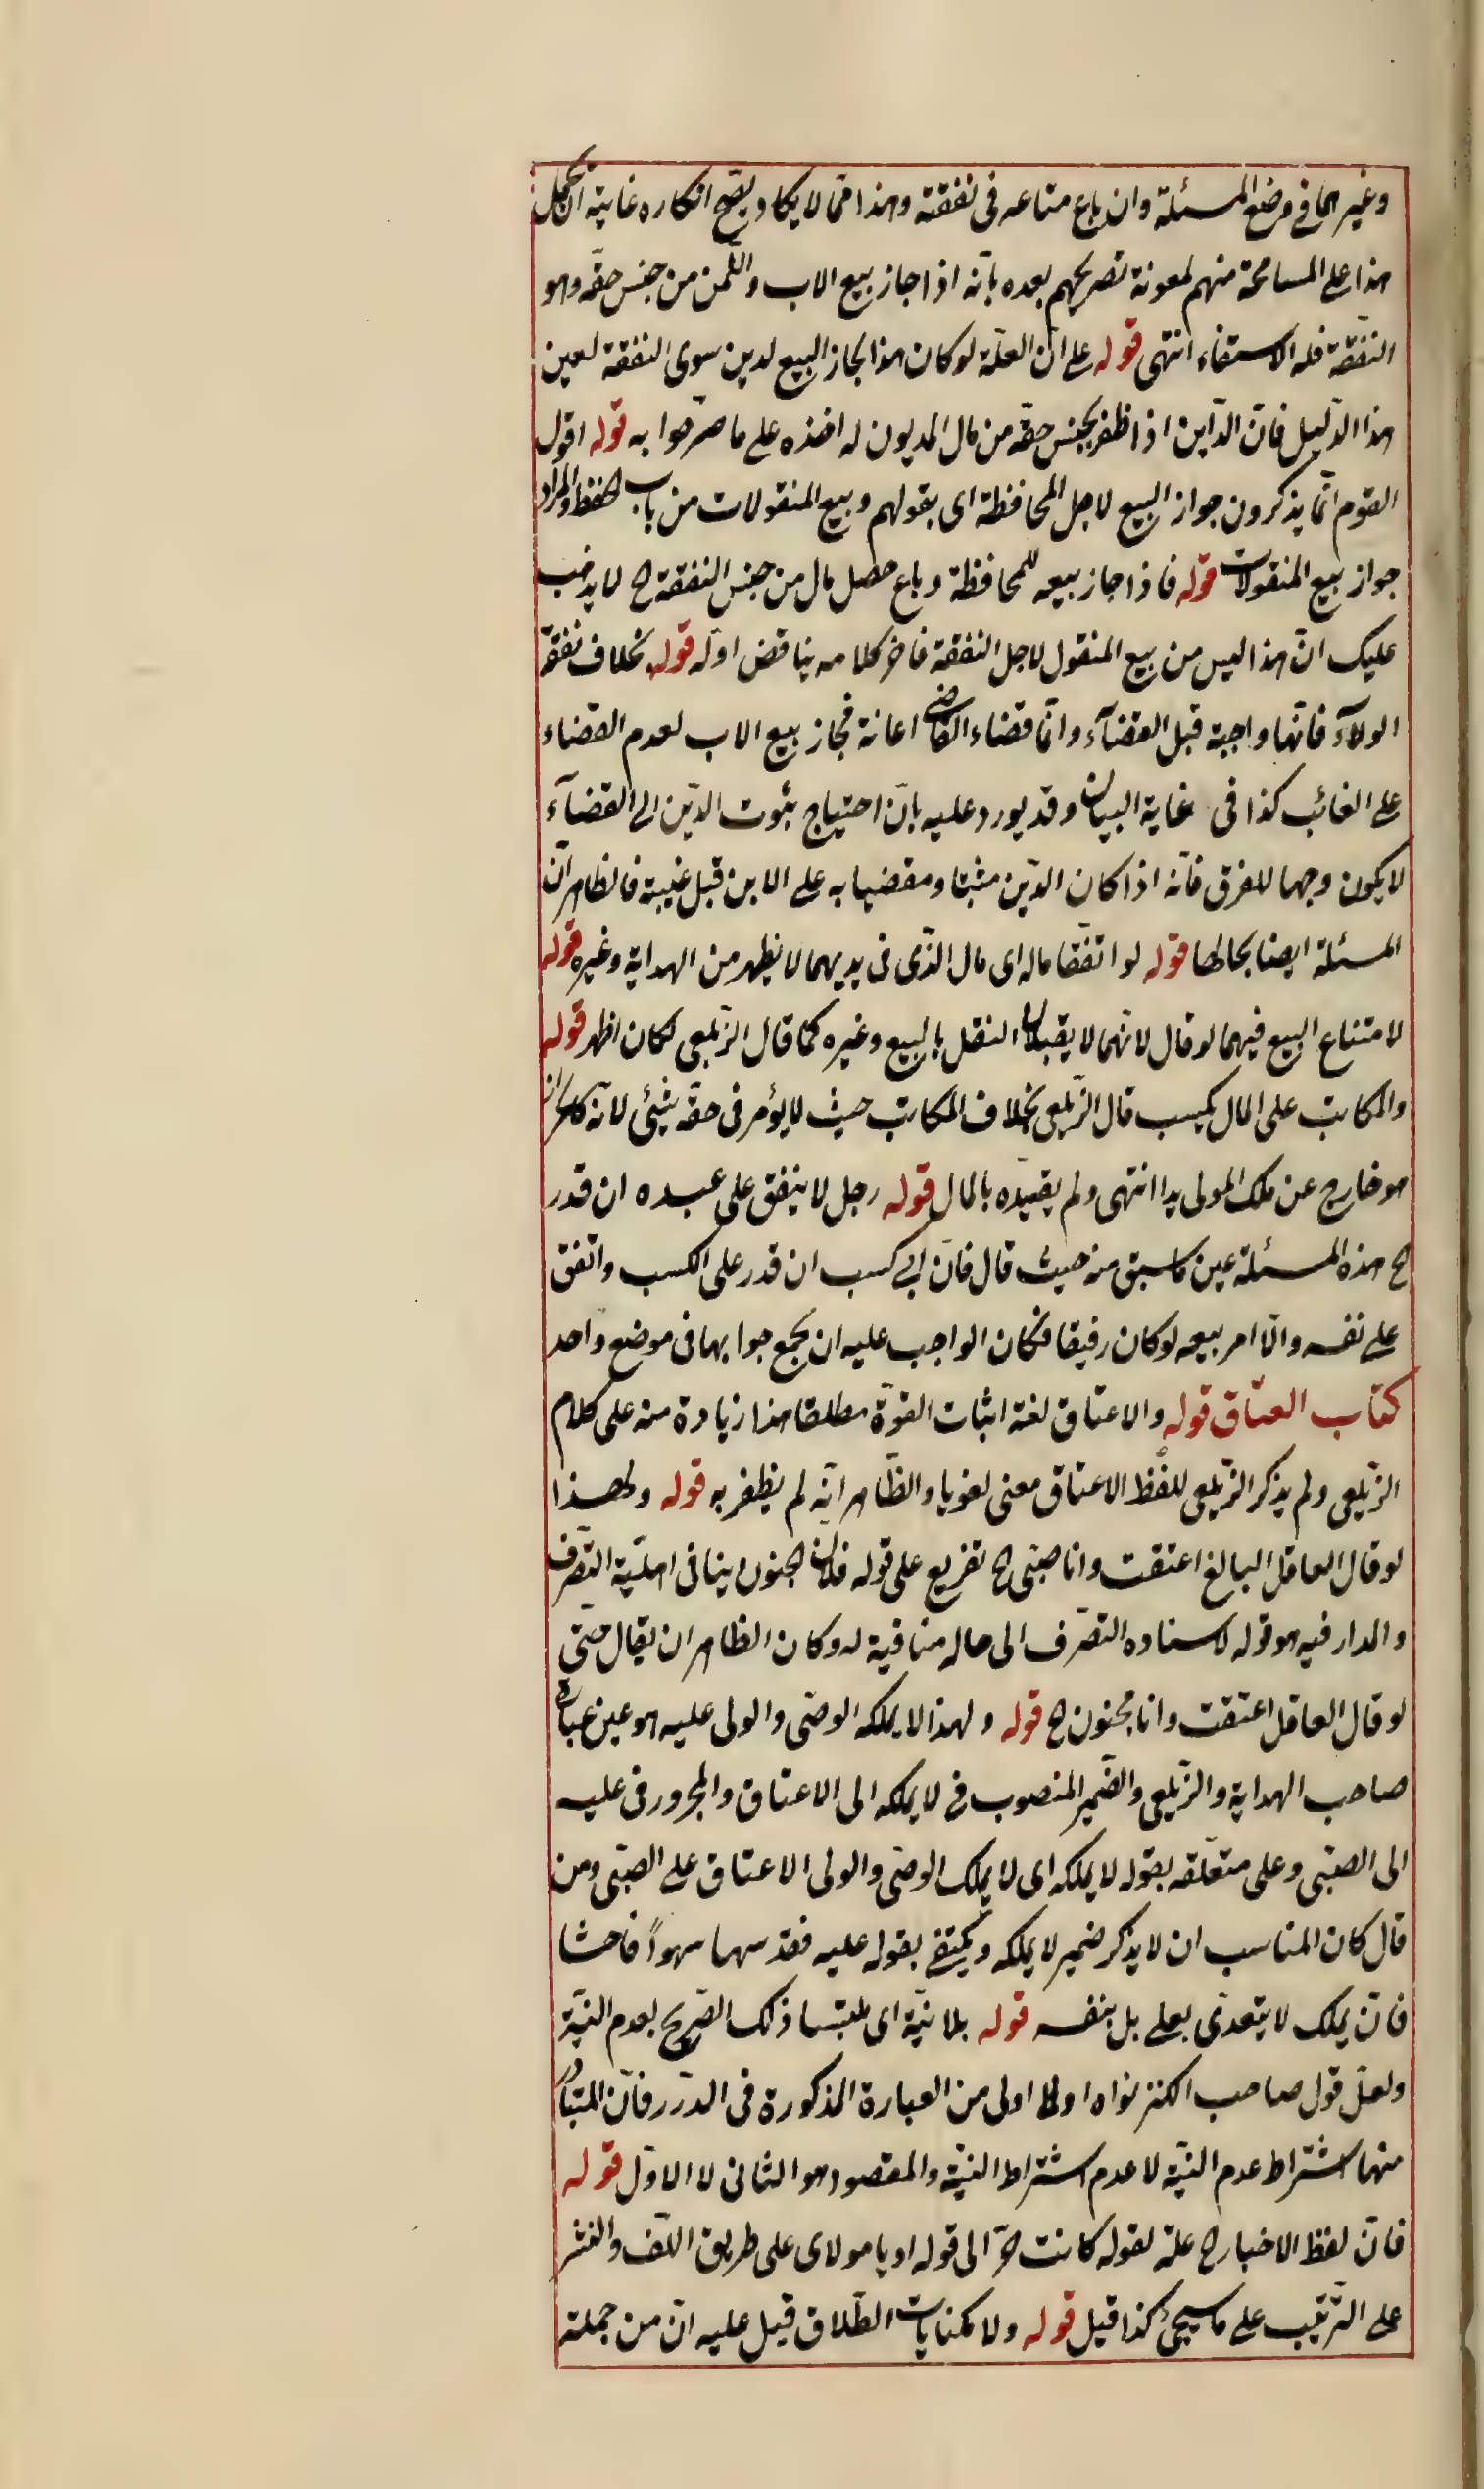 وغيرهما في وضع المسئلة وان باع متاعه في نفقته وهذا ممّا لا يكاد يصحّ انكاره غايته ان يحمل
هذا على المسامحة منهم لمعونة تصريحهم بعده بانّه اذا جاز بيع الاب والثّمن من جنس حقّه وهو
النّفقة فله الاستيفاء انتهى قوله على انّ العلّة لو كان هذا لجاز البيع لدين سوى النفقة لعين
هذا الدّليل فانّ الدّاين اذا ظفر بجنس حقّه من مال المديون له اخذه على ما صرّحوا به قوله اقول
القوم انّما يذكرون جواز البيع لاجل المحافظة اى بقولهم وبيع المنقولات من باب الحفظ والمراد
جواز بيع المنقولات قوله فاذا جاز بيعه للمحافظة وباع حصل مال من جنس النفقة الخ لا يذهب
عليك انّ هذا ليس من بيع المنقول لاجل النفقة فاخر كلامه يناقض اوله قوله بخلاف نفقة
الولاد فانّها واجبة قبل القضآء وانّما قضاء القاضى اعانة فجاز بيع الاب لعدم القضاء
على الغائب كذا فى غاية البيان وقد يورد عليه بانّ احتياج ثبوت الدّين الى القضآء
لا يكون وجها للفرق فانّه اذا كان الدّين مثبتا ومقضيا به على الابن قبل غيبته فالظاهر انّ
المسئلة ايضا بحالها قوله لو انفقا ماله اى مال الذّى فى يديهما لا يظهر من الهداية وغيره قوله
لامتناع البيع فيهما لو قال لانّهما لا يقبلان النقل بالبيع وغيره كما قال الزّيلعى لكان اظهر قوله
والمكاتب على المال يكسب قال الزّيلعى بخلاف المكاتب حيث لا يؤمر فى حقّه بشئ لانّه كالحرّ اذ
هو خارج عن ملك المولى يدا انتهى ولم يقيّده بالمال قوله رجل لا ينفق على عبده ان قدر
الخ هذه المسئلة عين ما سبق منه حيث قال فان ابى كسب ان قدر على الكسب وانفق
على نفسه والّا امر ببيعه لو كان رقيقا فكان الواجب عليه ان يجمع جوابهما فى موضع واحد
كتاب العتاق قوله والاعتاق لغة اثبات القوّة مطلقا هذا زيادة منه على كلام
الزّيلعى ولم يذكر الزّيلعى للفظ الاعتاق معنى لغويا والظّاهر انّه لم يظفر به قوله ولهذا
لو قال العاقل البالغ اعتقت وانا صبّى الخ تفريع على قوله فلان الجنون ينافى اهليّة التصّرف
والمدار فيه هو قوله لاسناده التصّرف الى حاله منافية له وكان الظاهر ان يقال حتّى
لو قال العاقل اعتقت وانا مجنون الخ قوله ولهذا لا يملكه الوصّى والولى عليه هو عين عبارة
صاحب الهداية والزّيلعى والضّمير المنصوب فى لا يملكه الى الاعتاق والمجرور فى عليه
الى الصّبى وعلى متعلّقه بقوله لا يملكه اى لا يملك الوصّى والولى الاعتاق على الصّبى ومن
قال كان المناسب ان لا يذكر ضمير لا يملكه ويكتفى بقوله عليه فقد سها سهواً فاحشا
فانّ يملك لا يتعدّى بعلى بل بنفسه قوله بلا نيّة اى ملتبسا ذلك الصّريح بعدم النيّة
ولعلّ قول صاحب الكنز نواه او لا اولى من العبارة المذكورة فى الدّرر فانّ المتبادر
منها اشتراط عدم النيّة لا عدم اشتراط النيّة والمقصود هو الثانى لا الاوّل قوله
فانّ لفظ الاخبار الخ علة لقوله كانت حرّ الى قوله او يا مولاى على طريق اللّف والنشر
على التّرتيب على ما سيجئ كذا قيل قوله ولا بكنايات الطّلاق قيل عليه انّ من جملة